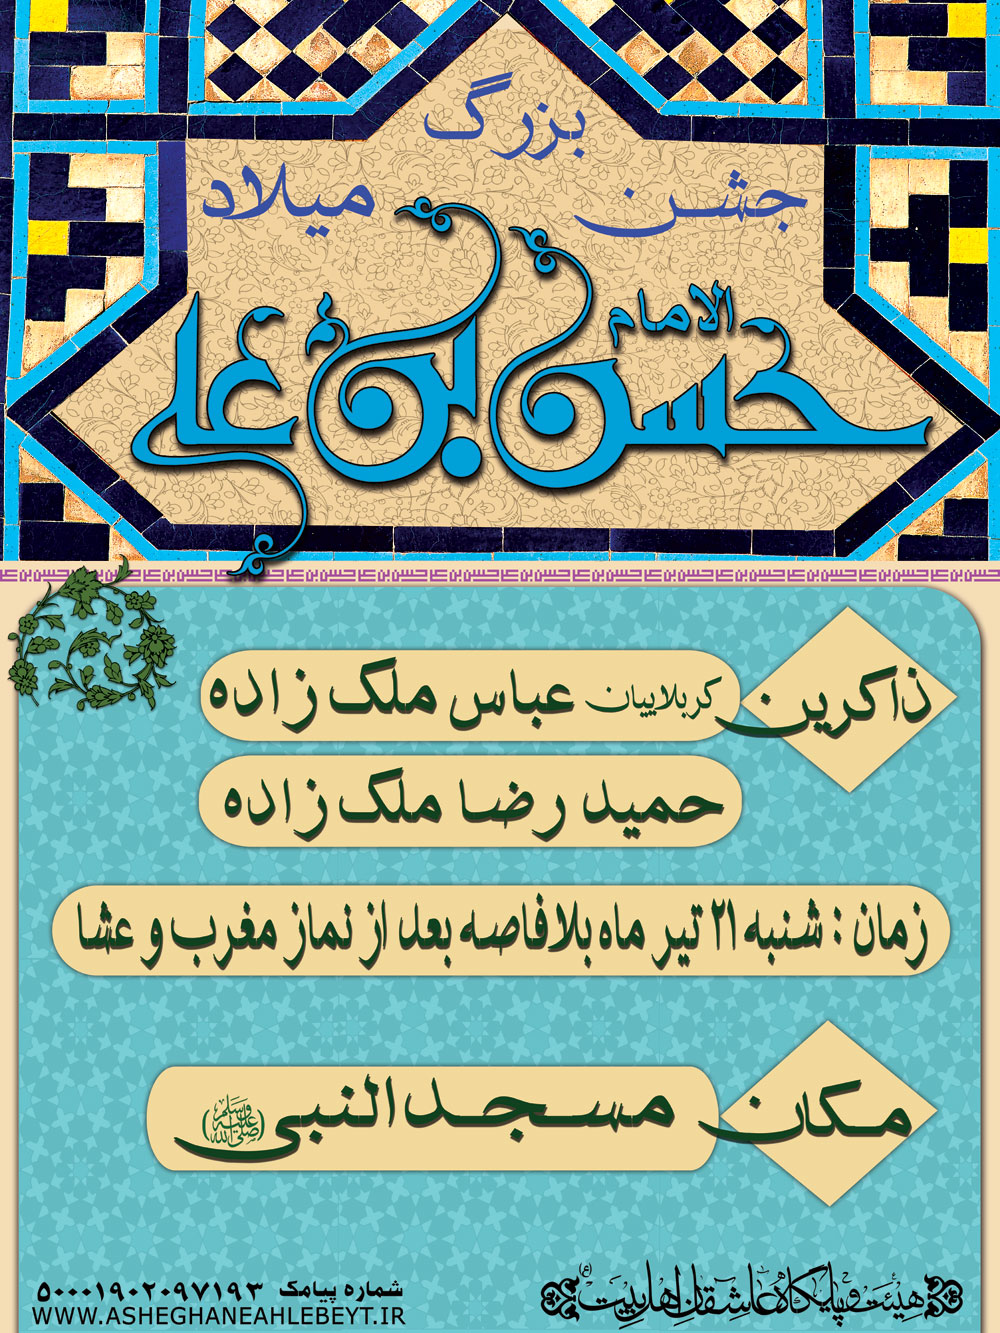 جشن بزرگ میلاد
الامام
حسن بن علی
ذاکرین
کربلاییان عباس ملک زاده
حمید رضا ملک زاده
زمان : شنبه ۲۱ تیر ماه بلافاصه بعد از نماز مغرب و عشا
مکان
مسجد النبی (صلی الله علیه وسلم)
هیئت و پایگاه عاشقان اهل بیت (ع)
شماره پیامک ۵۰۰۰۱۹۰۲۰۹۷۱۹۳
WWW.ASHEGHANEAHLEBEYT.IR